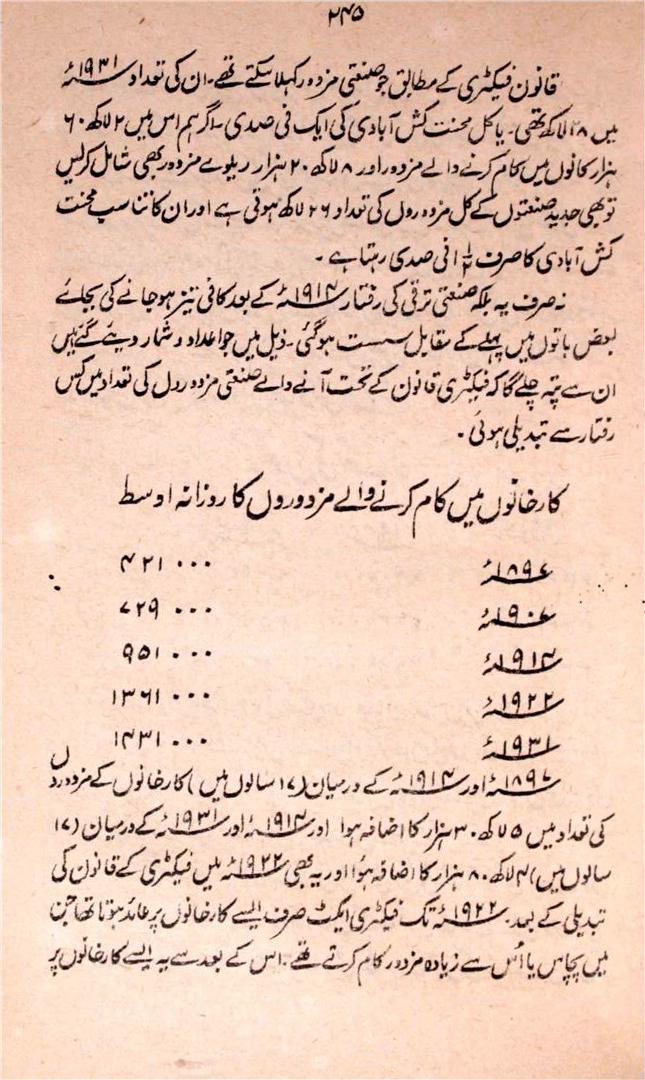 ۲۴۵
قانون فیکٹری کے مطابق جو صنعتی مزدور کہلا سکتے تھے۔ ان کی تعداد ۱۹۳۱ء
میں ۲۸ لاکھ تھی۔ یا کل محنت کش آبادی کی ایک فی صدی۔ اگر ہم اس میں ۲ لاکھ ۶۰
ہزار کانوں میں کام کرنے والے مزدور اور ۸ لاکھ ۲۰ ہزار ریلوے مزدور بھی شامل کرلیں
تو بھی جدید صنعتوں کے کل مزدوروں کی تعداد ۲۶ لاکھ ہوتی ہے اور ان کا تناسب محنت
کش آبادی کا صرف ۱½ فی صدی رہتا ہے۔
نہ صرف یہ بلکہ صنعتی ترقی کی رفتار ۱۹۱۴ء کے بعد کافی تیز ہو جانے کی بجائے
بعض باتوں میں پہلے کے مقابل سست ہوگئی۔ ذیل میں جو اعداد و شمار دیئے گئے ہیں
ان سے پتہ چلے گا کہ فیکٹری قانون کے تحت آنے والے صنعتی مزدوروں کی تعداد میں کس
رفتار سے تبدیلی ہوئی۔
کارخانوں میں کام کرنے والے مزدوروں کا روزانہ اوسط
۱۸۹۷ء ۴۲۱۰۰۰
۱۹۰۷ء ۷۲۹۰۰۰
۱۹۱۴ء ۹۵۱۰۰۰
۱۹۲۲ء ۱۳۶۱۰۰۰
۱۹۳۱ء ۱۴۳۱۰۰۰
۱۸۹۷ء اور ۱۹۱۴ء کے درمیان (۱۷ سالوں میں) کارخانوں کے مزدوروں
کی تعداد میں ۵ لاکھ ۳۰ ہزار کا اضافہ ہوا اور ۱۹۱۴ء اور ۱۹۳۱ء کے درمیان (۱۷
سالوں میں) ۴ لاکھ ۸۰ ہزار کا اضافہ ہؤا اور یہ بھی ۱۹۲۲ء میں فیکٹری کے قانون کی
تبدیلی کے بعد۔ ۱۹۲۲ء تک فیکٹری ایکٹ صرف ایسے کارخانوں پر عائد ہوتا تھا جن
میں پچاس یا اُس سے زیادہ مزدور کام کرتے تھے۔ اس کے بعد سے یہ ایسے کارخانوں پر